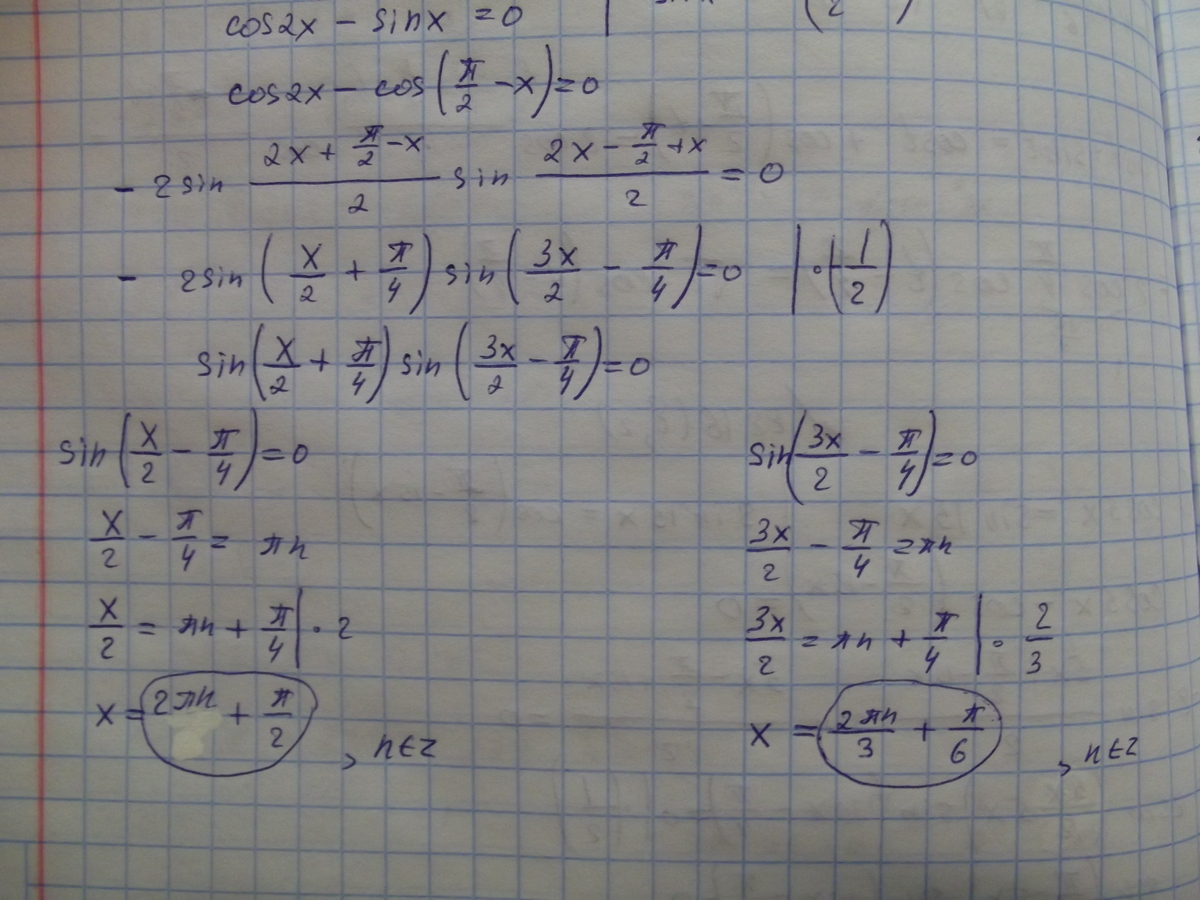 cos2x - sinx = 0 |
cos2x - cos(π/2 - x) = 0
- 2sin (2x + π/2 - x)/2 sin (2x - π/2 + x)/2 = 0
- 2sin(x/2 + π/4) sin(3x/2 - π/4) = 0 | · (-1/2)
sin(x/2 + π/4) sin(3x/2 - π/4) = 0
sin(x/2 - π/4) = 0 sin(3x/2 - π/4) = 0
x/2 - π/4 = πn 3x/2 - π/4 = πn
x/2 = πn + π/4 | · 2 3x/2 = πn + π/4 | · 2/3
x = 2πn + π/2 , n∈Z x = 2πn/3 + π/6 , n∈Z